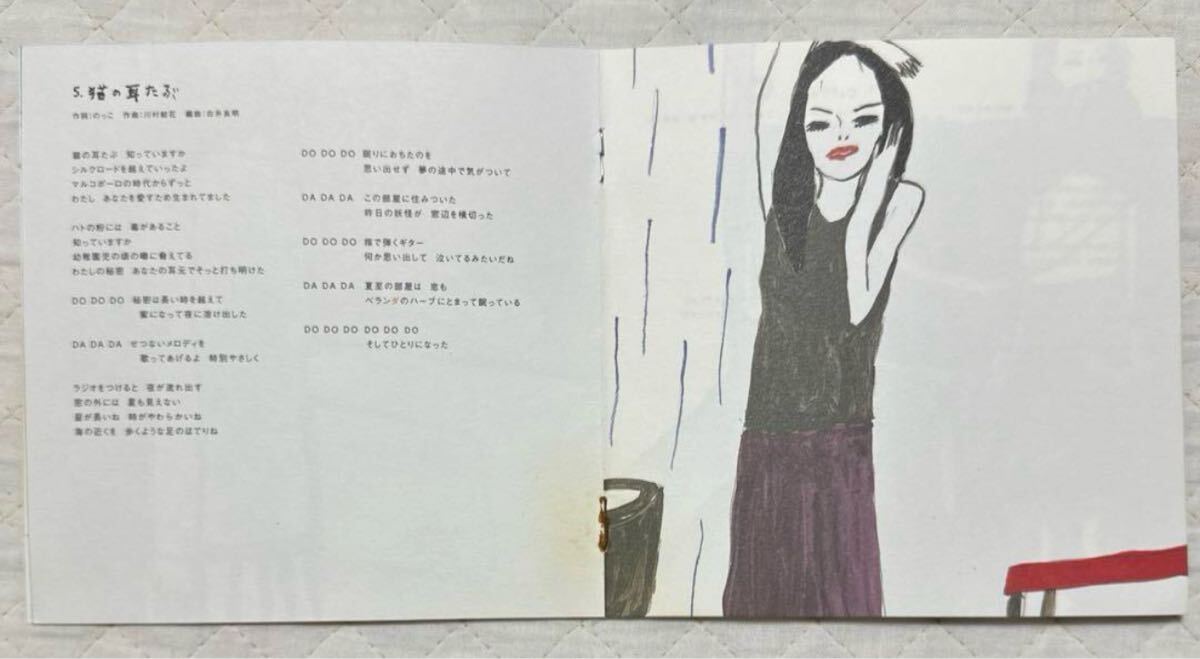 5. 猫の耳たぶ
作詞：のっこ 作曲：川村結花 編曲：白井良明
猫の耳たぶ 知っていますか
シルクロードを越えていったよ
マルコポーロの時代からずっと
わたし あなたを愛すため生まれてました
ハトの粉には 毒があること
知っていますか
幼稚園児の頃の噂に脅えてる
わたしの秘密 あなたの耳元でそっと打ち明けた
DO DO DO 秘密は長い時を越えて
蜜になって夜に溶け出した
DA DA DA せつないメロディを
歌ってあげるよ 特別やさしく
ラジオをつけると 夜が流れ出す
窓の外には 星も見えない
昼が長いね 時がやわらかいね
海の近くを 歩くような足のほてりね
DO DO DO 眠りにおちたのを
思い出せず 夢の途中で気がついて
DA DA DA この部屋に住みついた
昨日の妖怪が 窓辺を横切った
DO DO DO 指で弾くギター
何か思い出して 泣いてるみたいだね
DA DA DA 夏至の部屋は 恋も
ベランダのハーブにとまって眠っている
DO DO DO DO DO DO
そしてひとりになった